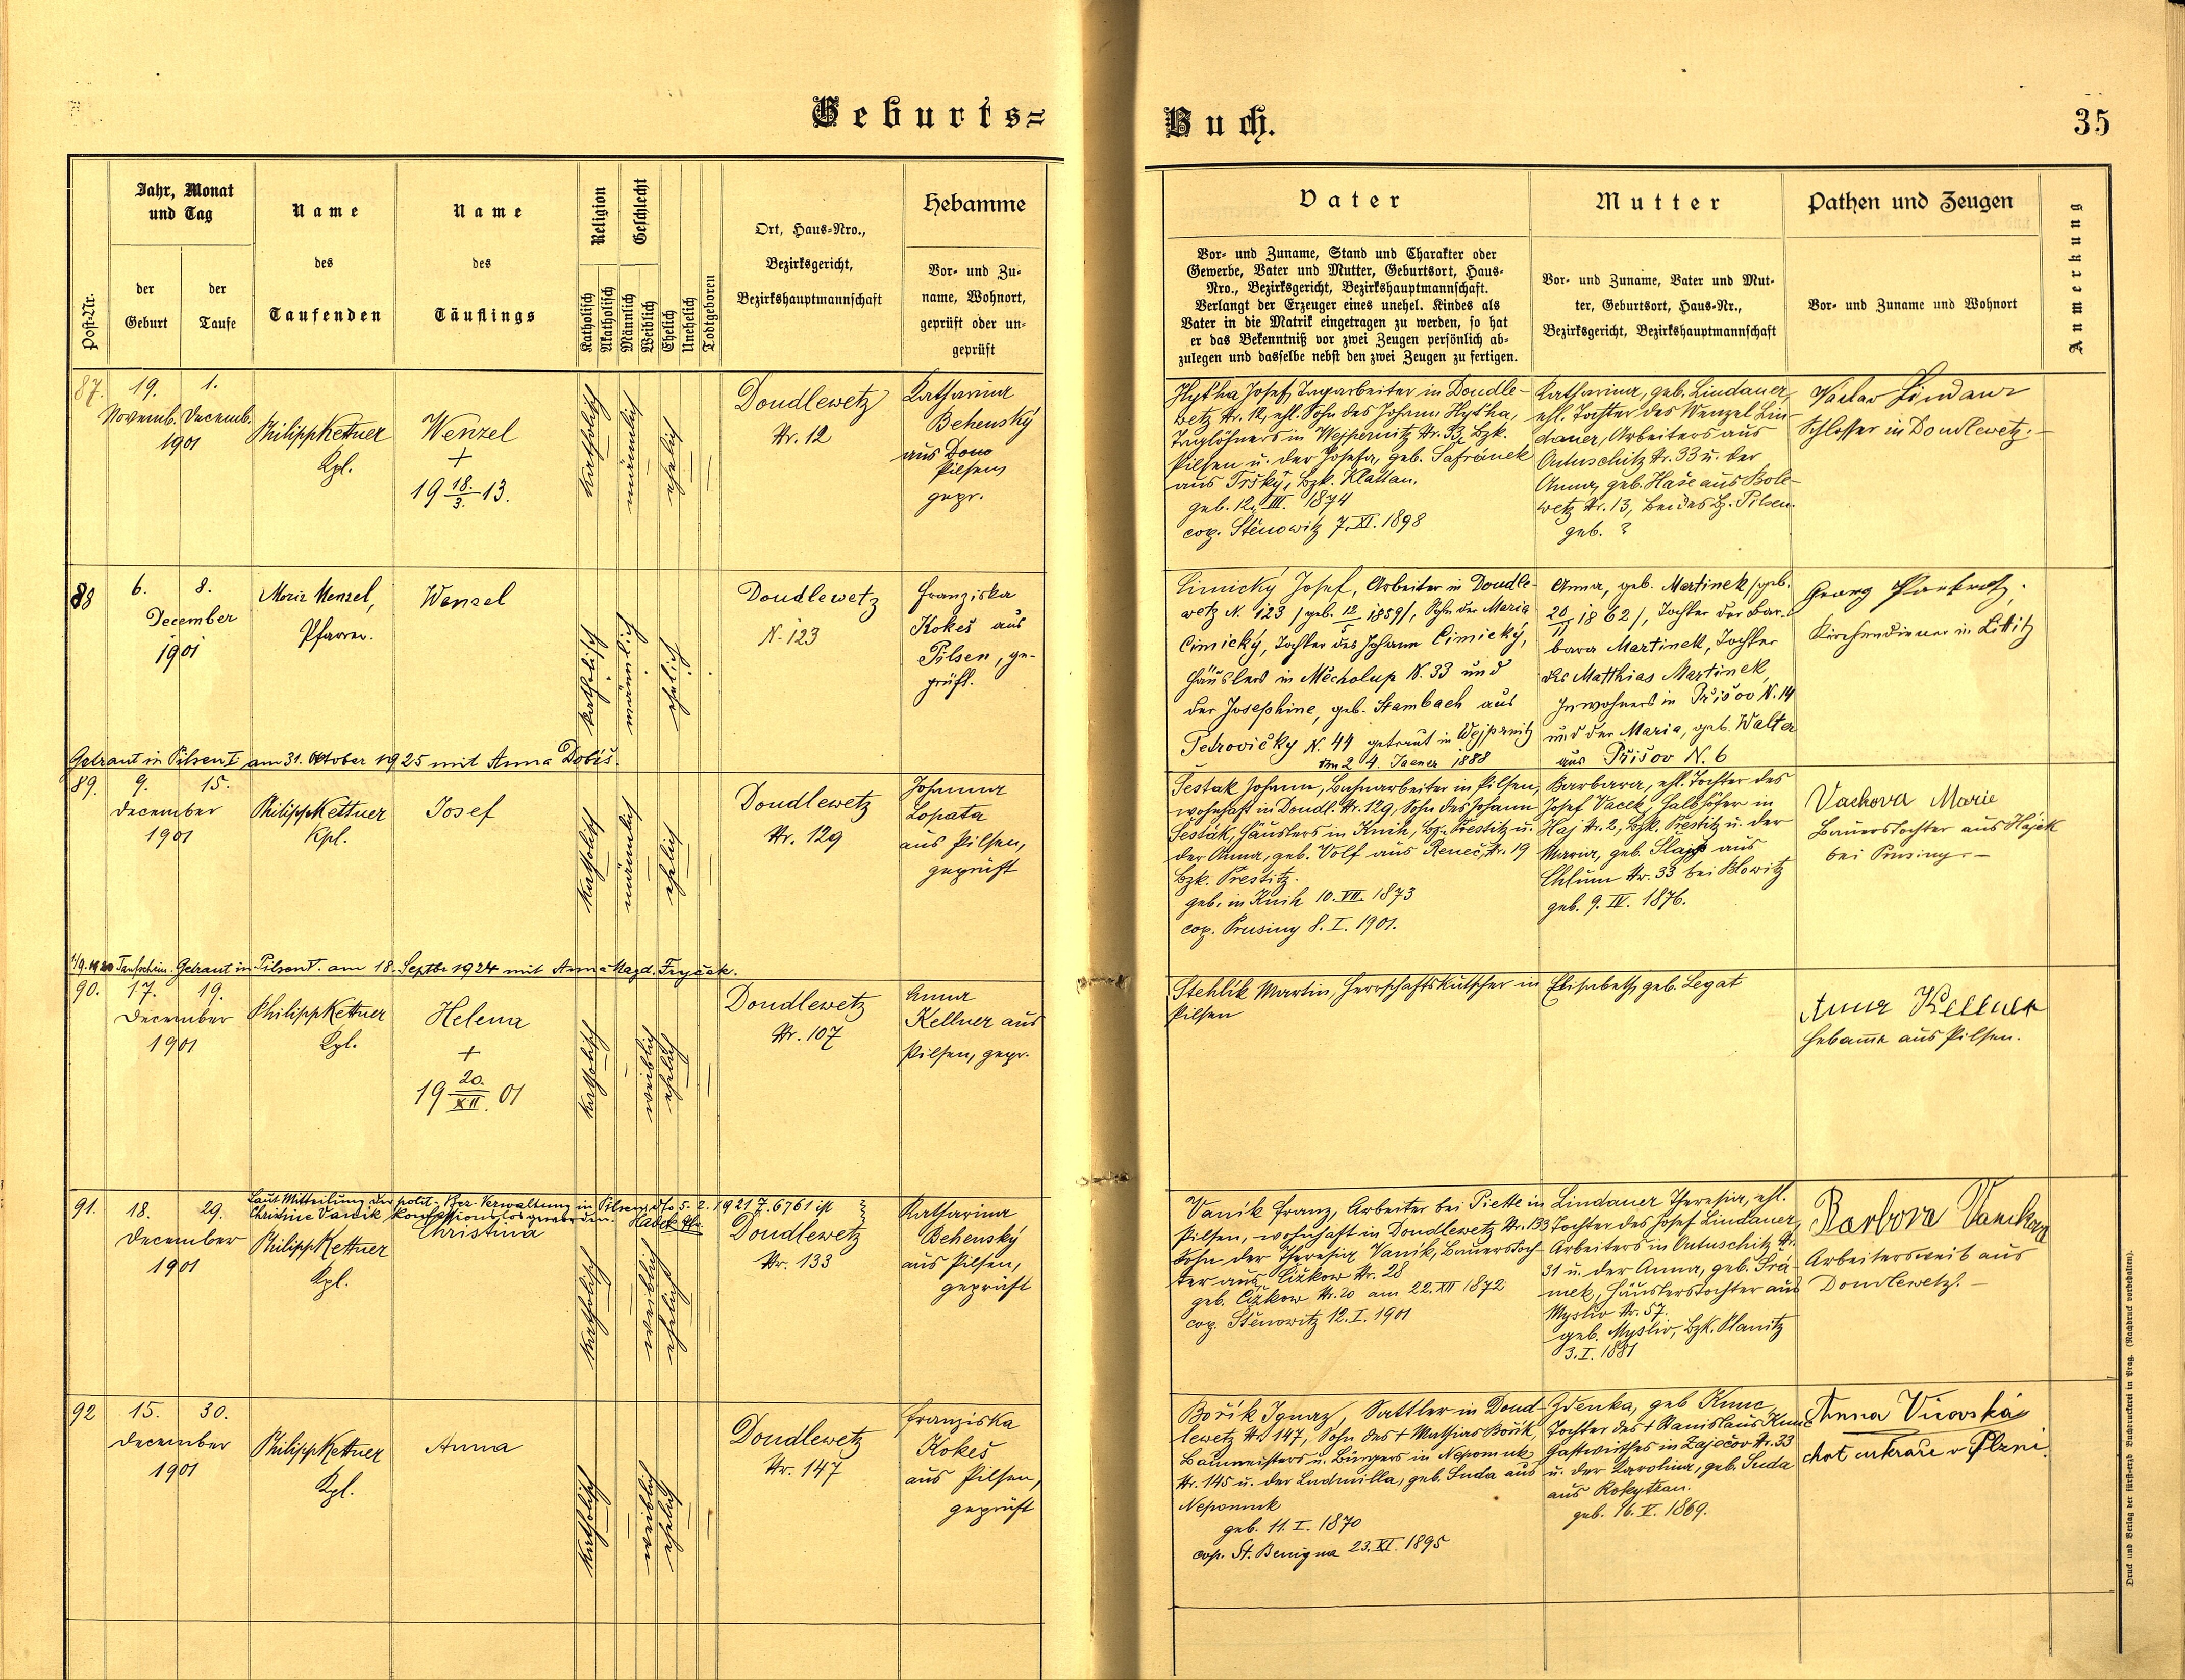 Geburts=
Buch.
35
Post-Nr.
Jahr, Monat
und Tag
der
Geburt
der
Taufe
Name
des
Taufenden
Name
des
Täuflings
Religion
Katholisch
Akatholisch
Geschlecht
Männlich
Weiblich
Ehelich
Unehelich
Todtgeboren
Ort, Haus-Nro.,
Bezirksgericht,
Bezirkshauptmannschaft
Hebamme
Vor- und Zu-
name, Wohnort,
geprüft oder un-
geprüft
Vater
Vor- und Zuname, Stand und Charakter oder
Gewerbe, Vater und Mutter, Geburtsort, Haus-
Nro., Bezirksgericht, Bezirkshauptmannschaft.
Verlangt der Erzeuger eines unehel. Kindes als
Vater in die Matrik eingetragen zu werden, so hat
er das Bekenntniß vor zwei Zeugen persönlich ab-
zulegen und dasselbe nebst den zwei Zeugen zu fertigen.
Mutter
Vor- und Zuname, Vater und Mut-
ter, Geburtsort, Haus-Nr.,
Bezirksgericht, Bezirkshauptmannschaft
Pathen und Zeugen
Vor- und Zuname und Wohnort
Anmerkung
87.
19. 1.
Novemb. Decemb.
1901
Philipp Kettner
Kpl.
Wenzel
+
19 18./3. 13.
katholisch
männlich
ehelich
Doudlewetz
Nr. 12
Katharina
Behenský
aus Dono
Pilsen,
gepr.
Hytha Josef, Tagarbeiter in Doudle-
wetz Nr. 12, ehl. Sohn des Johann Hytha,
Taglöhners in Wejpernitz Nr. 33, Bzk.
Pilsen u. der Josefa, geb. Šafránek
aus Trsky, Bzk. Klattau.
geb. 12. III. 1874
cop. Stěnowitz 7. XI. 1898
Katharina, geb. Lindauer,
ehl. Tochter des Wenzel Lin-
dauer, Arbeiters aus
Ontuschitz Nr. 33 u. der
Anna, geb. Haše aus Bole-
wetz Nr. 13, beides Bz. Pilsen.
geb. ?
Václav Lindaur
Schlosser in Doudlewetz.
88
6. 8.
December
1901
Moriz Menzel,
Pfarrer.
Wenzel
katholisch
männlich
ehelich
Doudlewetz
N. 123
Franziska
Kokeš aus
Pilsen, ge-
prüft.
Cimický Josef, Arbeiter in Doudle-
wetz N. 123 /geb. 12/5 1859/, Sohn der Maria
Cimický, Tochter des Johann Cimický,
Häuslers in Měcholup N. 33 und
der Josephine, geb. Stambach aus
Petrovičky N. 44 getraut in Wejprnitz
am 24. Jaener 1888
Anna, geb. Martinek /geb.
20/11 1862/, Tochter der Bar-
bara Martinek, Tochter
des Matthias Martinek,
Inwohners in Přišov N. 14
und der Maria, geb. Walter
aus Přišov N. 6
Georg
Kirchendiener in Littitz
Getraut in Pilsen I am 31. Oktober 1925 mit Anna Dobiš.
89.
9. 15.
December
1901
Philipp Kettner
Kpl.
Josef
katholisch
männlich
ehelich
Doudlewetz
Nr. 129
Johanna
Lopata
aus Pilsen,
geprüft
Šestak Johann, Bahnarbeiter in Pilsen,
wohnhaft in Doudl. Nr. 129, Sohn des Johann
Šesták, Häuslers in Knih, Bz. Prestitz u.
der Anna, geb. Volf aus Reneč, Nr. 19
Bzk. Prestitz.
geb. in Knih 10. VII. 1873
cop. Prusiny 8. I. 1901.
Barbara, ehl. Tochter des
Josef Vacek, Halbhöfer in
Haj Nr. 2, Bzk. Prestitz u. der
Maria, geb. Slajs aus
Chlum Nr. 33 bei Blowitz
geb. 9. IV. 1876.
Vackova Marie
Bauerstochter aus Hájek
bei Prusiny.
Taufschein. Getraut in Pilsen V. am 18. Septbr 1924 mit Anna Magd. Fryček.
90.
17. 19.
December
1901
Philipp Kettner
Kpl.
Helena
+
19 20./XII. 01
katholisch
weiblich
ehelich
Doudlewetz
Nr. 107
Anna
Kellner aus
Pilsen, gepr.
Stehlík Martin, Herrschaftskutscher in
Pilsen
Elisabeth, geb. Legat
Anna Kellner
Hebamme aus Pilsen.
91.
18. 29.
December
1901
Laut Mitteilung der polit. Bez. Verwaltung in Pilsen, dto 5. 2. 1921 Z. 6761 ist
Christine Vaník konfessionslos geworden.
Philipp Kettner
Kpl.
Christina
katholisch
weiblich
ehelich
Doudlewetz
Nr. 133
Katharina
Behenský
aus Pilsen,
geprüft
Vaník Franz, Arbeiter bei Piette in
Pilsen, wohnhaft in Doudlewetz Nr. 133
Sohn der Theresia Vaník, Bauerstoch-
ter aus Čižkow Nr. 28
geb. Čižkow Nr. 20 am 22. XII 1872
cop. Stěnowitz 12. I. 1901
Lindauer Theresia, ehl.
Tochter des Josef Lindauer,
Arbeiters in Ontuschitz Nr.
31 u. der Anna, geb. Šrá-
mek, Häuslerstochter aus
Mysliv Nr. 57.
geb. Mysliv, Bzk. Planitz
3. I. 1881
Arbeitersweib aus
Doudlewetz.
92
15. 30.
December
1901
Philipp Kettner
Kpl.
Anna
katholisch
weiblich
ehelich
Doudlewetz
Nr. 147
Franziska
Kokeš
aus Pilsen,
geprüft
Bořík Ignaz, Sattler in Doud-
lewetz Nr. 147, Sohn des + Mathias Bořík,
Baumeisters u. Bürgers in Nepomuk
Nr. 145 u. der Ludmilla, geb. Suda aus
Nepomuk
geb. 11. I. 1870
cop. St. Benigna 23. XI. 1895
Zdenka, geb Kunc,
Tochter des + Stanislaus Kunc
Gastwirthes in Zaječov Nr. 33
u. der Karolina, geb. Suda
aus Rokytzan.
geb. 16. V. 1869.
Anna Vírovská
chot cukráře v Plzni.
Druck und Verlag der fürsterzb. Buchdruckerei in Prag. (Nachdruck vorbehalten).